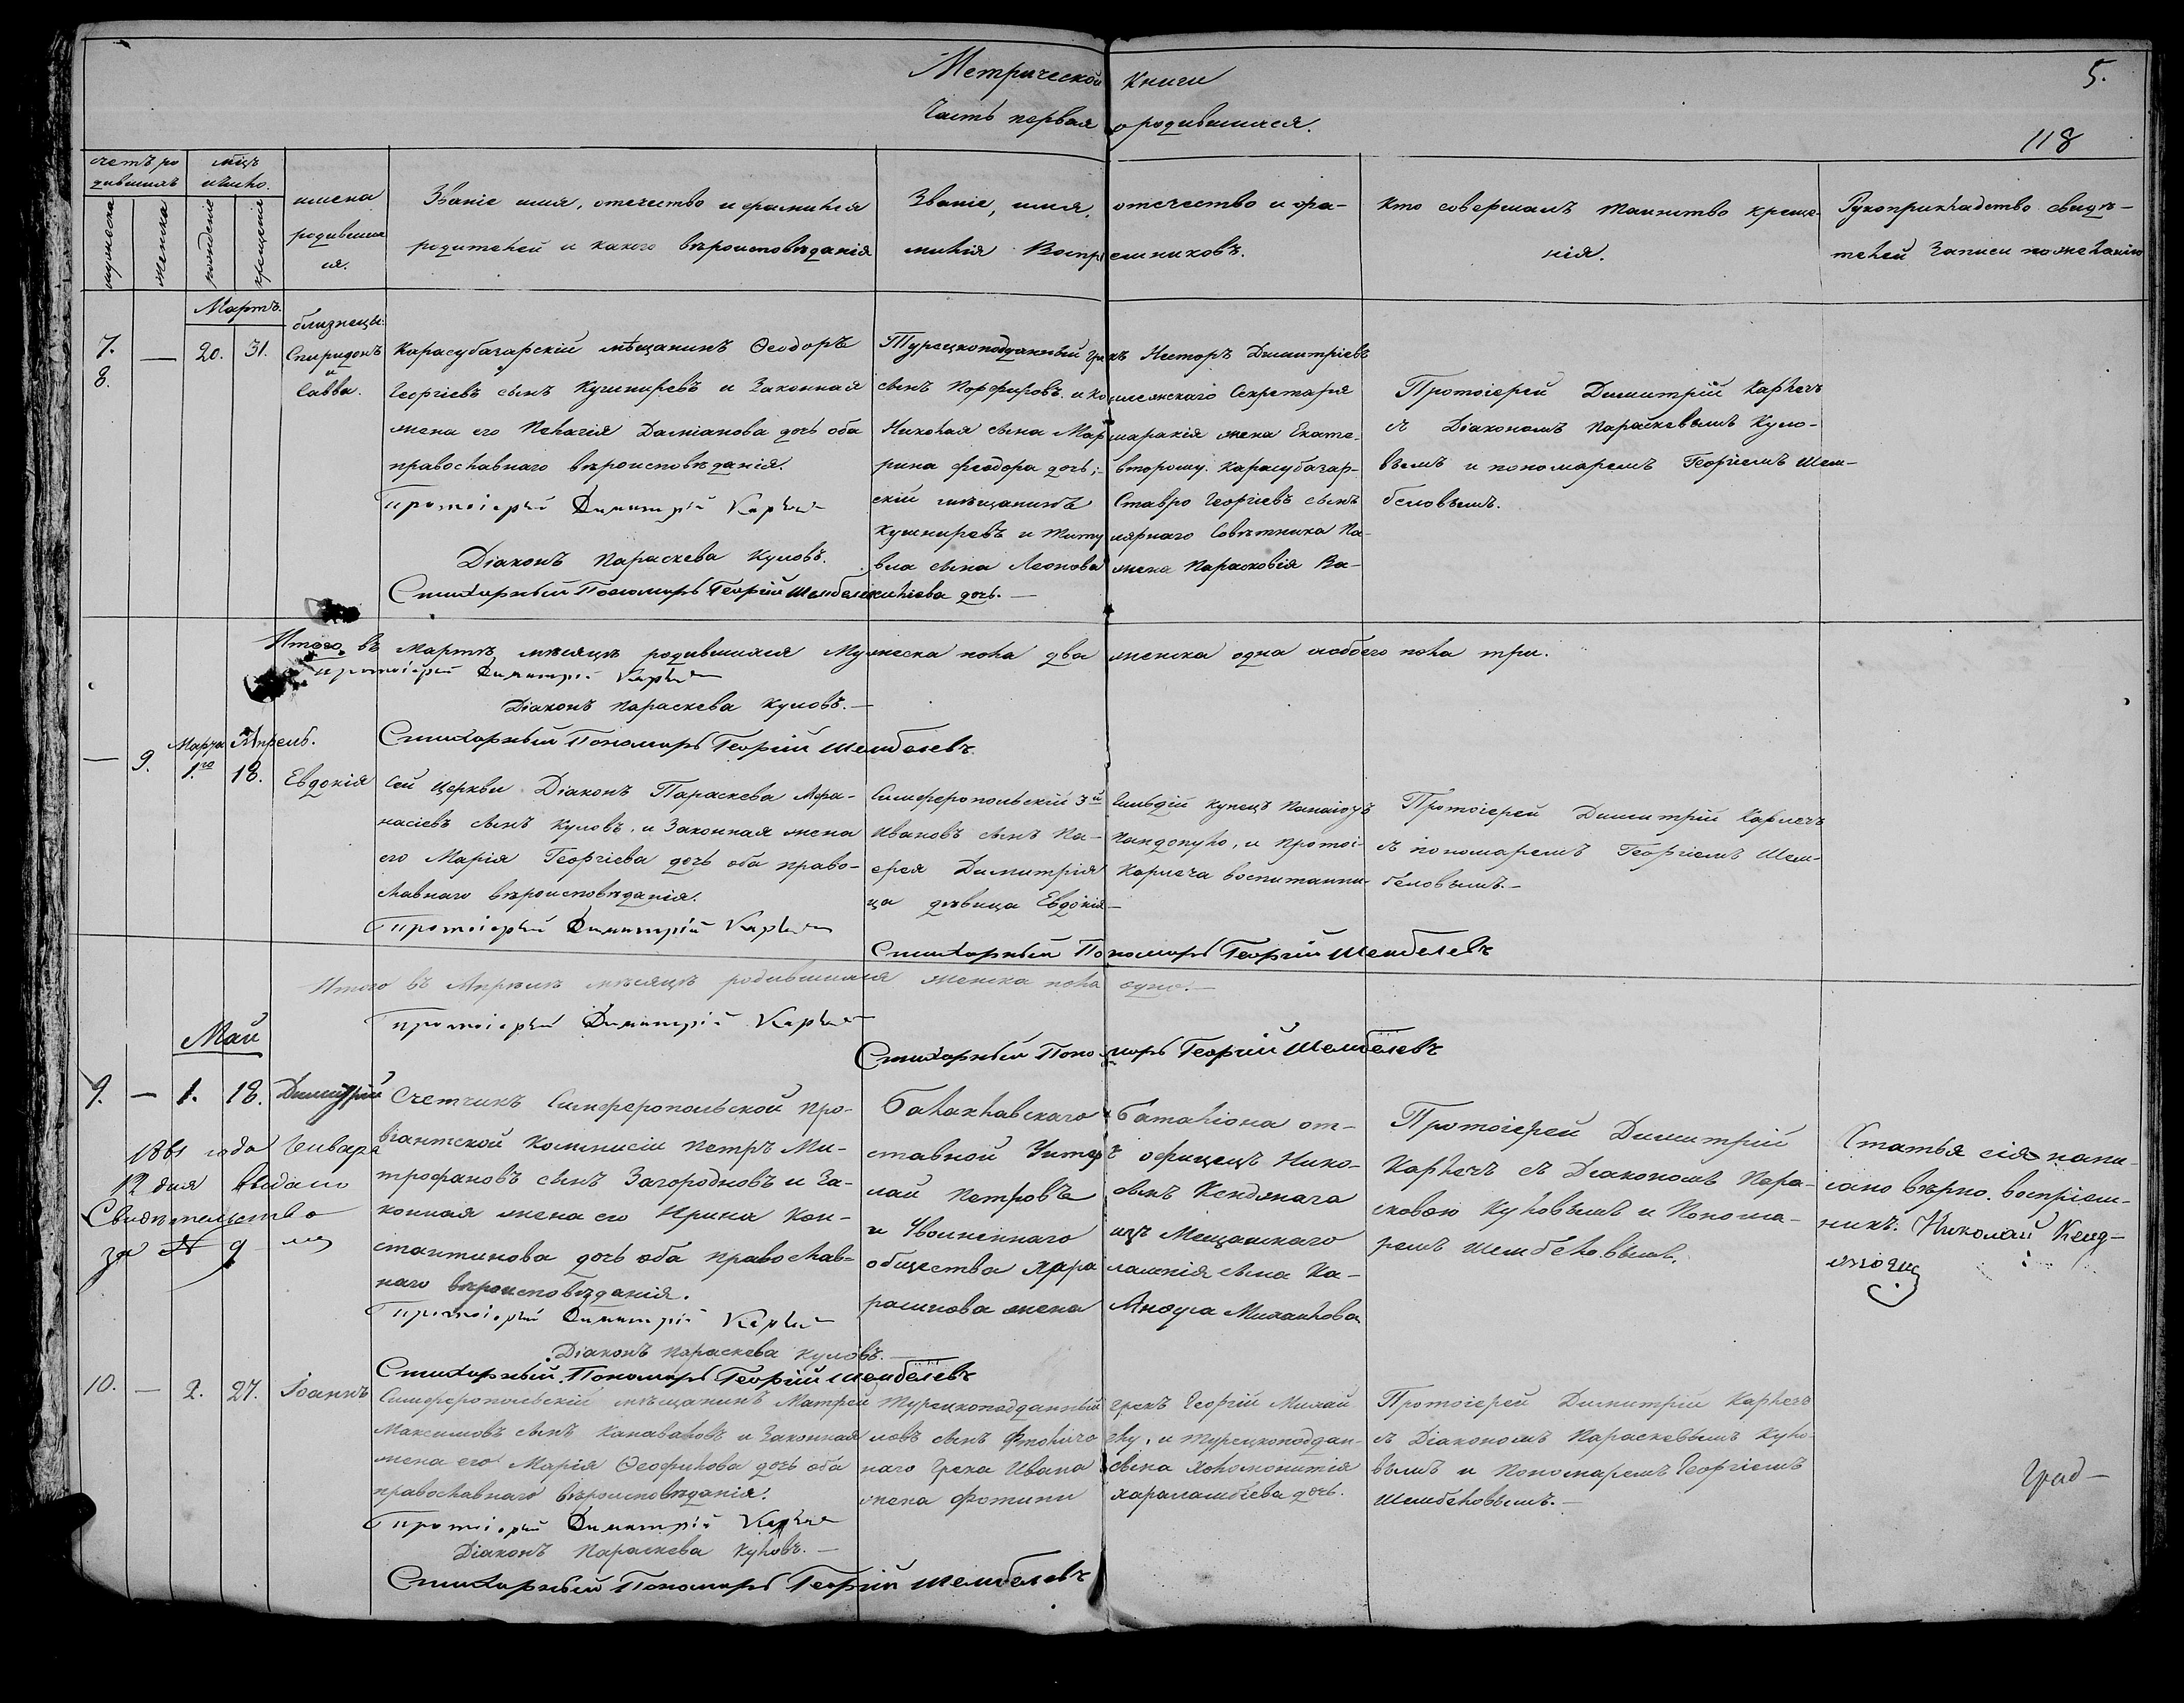 Метрической Книги
5.
Часть первая о родившихся.
118
счетъ ро
дившихъ
мѣц
и число.
имена
родивших
ся.
Званіе имя, отечество и фамилія
родителей и какого вѣроисповѣданія
Званіе, имя, отечество и фа-
милія Воспріемниковъ.
Кто совершалъ таинство креще-
нія.
Рукоприкладство свидѣ-
телей записи по желанію
мужеска
женска
рожденіе
крещеніе
Мартъ.
близнецы:
7.
8.
—
20.
31.
Спиридонъ
и
Савва.
Карасубазарскій мѣщанинъ Ѳеодоръ
Георгіевъ сынъ Кушниревъ и Законная
жена его Пелагія Даміанова дочь оба
православнаго вѣроисповѣданія.
Протоіерей Димитрій Карлечъ
Діаконъ Параскева Куловъ.
Стихарный Пономарь Георгій Шембелевъ
Турецкоподданный грекъ Несторъ Димитріевъ
сынъ Порфировъ. и Секретаря
Николая сына жена Екате-
рина Феодора дочь; второму. Карасубазар-
скій мѣщанинъ Ставро Георгіевъ сынъ
Кушниревъ и титулярнаго Совѣтника Па-
вла сына Леонова жена Парасковія Ва-
силіева дочь. —
Протоіерей Димитрій Карлечъ
съ Діакономъ Параскевымъ Куло-
вымъ и пономаремъ Георгіемъ Шем-
беловымъ.
Итого въ Мартѣ мѣсяцѣ родившихся Мужеска пола два женска одна обоего пола три.
Протоіерей Димитрій Карлечъ
Діаконъ Параскева Куловъ. —
Стихарный Пономарь Георгій Шембелевъ
Марта Апрель.
—
9.
1.го
18.
Евдокія
Сей Церкви Діаконъ Параскева Афа-
насіевъ сынъ Куловъ, и Законная жена
его Марія Георгіева дочь оба право-
славнаго вѣроисповѣданія.
Протоіерей Димитрій Карлечъ
Симферопольскій 3й Гильдій купецъ Панаіотъ
Ивановъ сынъ Па- пандопуло, и протоі-
ерея Димитрія Карлеча воспитанни-
ца дѣвица Евдокія —
Стихарный Пономарь Георгій Шембелевъ
Протоіерей Димитрій Карлечъ
съ пономаремъ Георгіемъ Шем-
беловымъ. —
Итого въ Апрелѣ мѣсяцѣ родившихся женска пола одна. —
Протоіерей Димитрій Карлечъ
Стихарный Пономарь Георгій Шембелевъ
Май
9.
—
1.
18.
Димитрій
1861 года Генваря
12 дня выдано
Свидѣтельство
за № 9
Счетчикъ Симферопольской про-
віантской Коммисіи Петръ Ми-
трофановъ сынъ Загородновъ и За-
конная жена его Ирина Кон-
стантинова дочь оба православ-
наго вѣроисповѣданія.
Протоіерей Димитрій Карлечъ
Діаконъ Параскева Куловъ. —
Стихарный Пономарь Георгій Шембелевъ
Балаклавскаго баталіона от-
ставной Унтеръ офицеръ Нико-
лай Петровъ сынъ
и Уволненнаго изъ Мещанскаго
общества Харалампія сына Ка-
жена Михаилова
Протоіерей Димитрій
Карлечъ съ Діакономъ Пара-
сковою Куловымъ и Понома-
ремъ Шембеловымъ.
Статья сія напи-
сано вѣрно. воспріем-
никъ: Николай
10.
—
2.
27.
Іоаннъ
Симферопольскій мѣщанинъ Матфей
Максимовъ сынъ Канаваловъ и Законная
жена его Марія Ѳеофилова дочь оба
православнаго вѣроисповѣданія.
Протоіерей Димитрій Карлечъ
Діаконъ Параскева Куловъ. —
Стихарный Пономарь Георгій Шембелевъ
Турецкоподданный грекъ Георгій Михай
ловъ сынъ и Турецкоподдан-
наго Грека Ивана сына
жена Фотини Харалампіева дочь.
Протоіерей Димитрій Карлечъ
съ Діакономъ Параскевымъ Куло-
вымъ и Пономаремъ Георгіемъ
Шембеловымъ. —